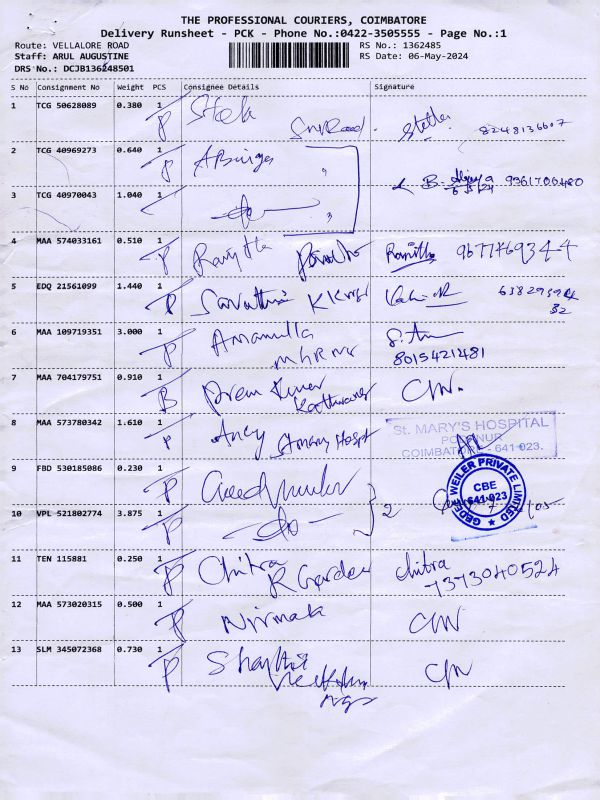 THE PROFESSIONAL COURIERS, COIMBATORE
Delivery Runsheet - PCK - Phone No.:0422-3505555 - Page No.:1
Route: VELLALORE ROAD
Staff: ARUL AUGUSTINE
DRS No.: DCJB136248501
RS No.: 1362485
RS Date: 06-May-2024
S No Consignment No Weight PCS Consignee Details Signature
1 TCG 50628089 0.380 1 P Stella Stella
8248136607
2 TCG 40969273 0.640 1 P
B. 9361700480
3 TCG 40970043 1.040 1
4 MAA 574033161 0.510 1 P Ranjitha Ranjitha 9677469344
5 EDQ 21561099 1.440 1 P
6 MAA 109719351 3.000 1 P Amanulla
8015421481
7 MAA 704179751 0.910 1 Prem Kumar
8 MAA 573780342 1.610 1 P Ancy St mary Hospt
St. MARY'S HOSPITAL
PODANUR
COIMBATORE - 641 023.
9 FBD 530185086 0.230 1 P
GEDEE WEILER PRIVATE LIMITED
CBE
641 023
10 VPL 521802774 3.875 1 P 2
11 TEN 115881 0.250 1 P Chitra R Garden chitra
7373040524
12 MAA 573020315 0.500 1 P Nirmala
13 SLM 345072368 0.730 1 P